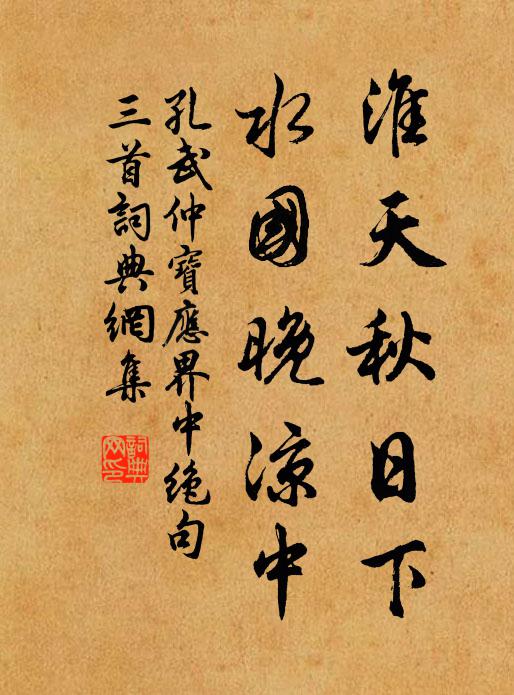 淮天秋日下
水國晚涼中
孔武仲寶應界中絶句
三首詞典網集
詞典
网印